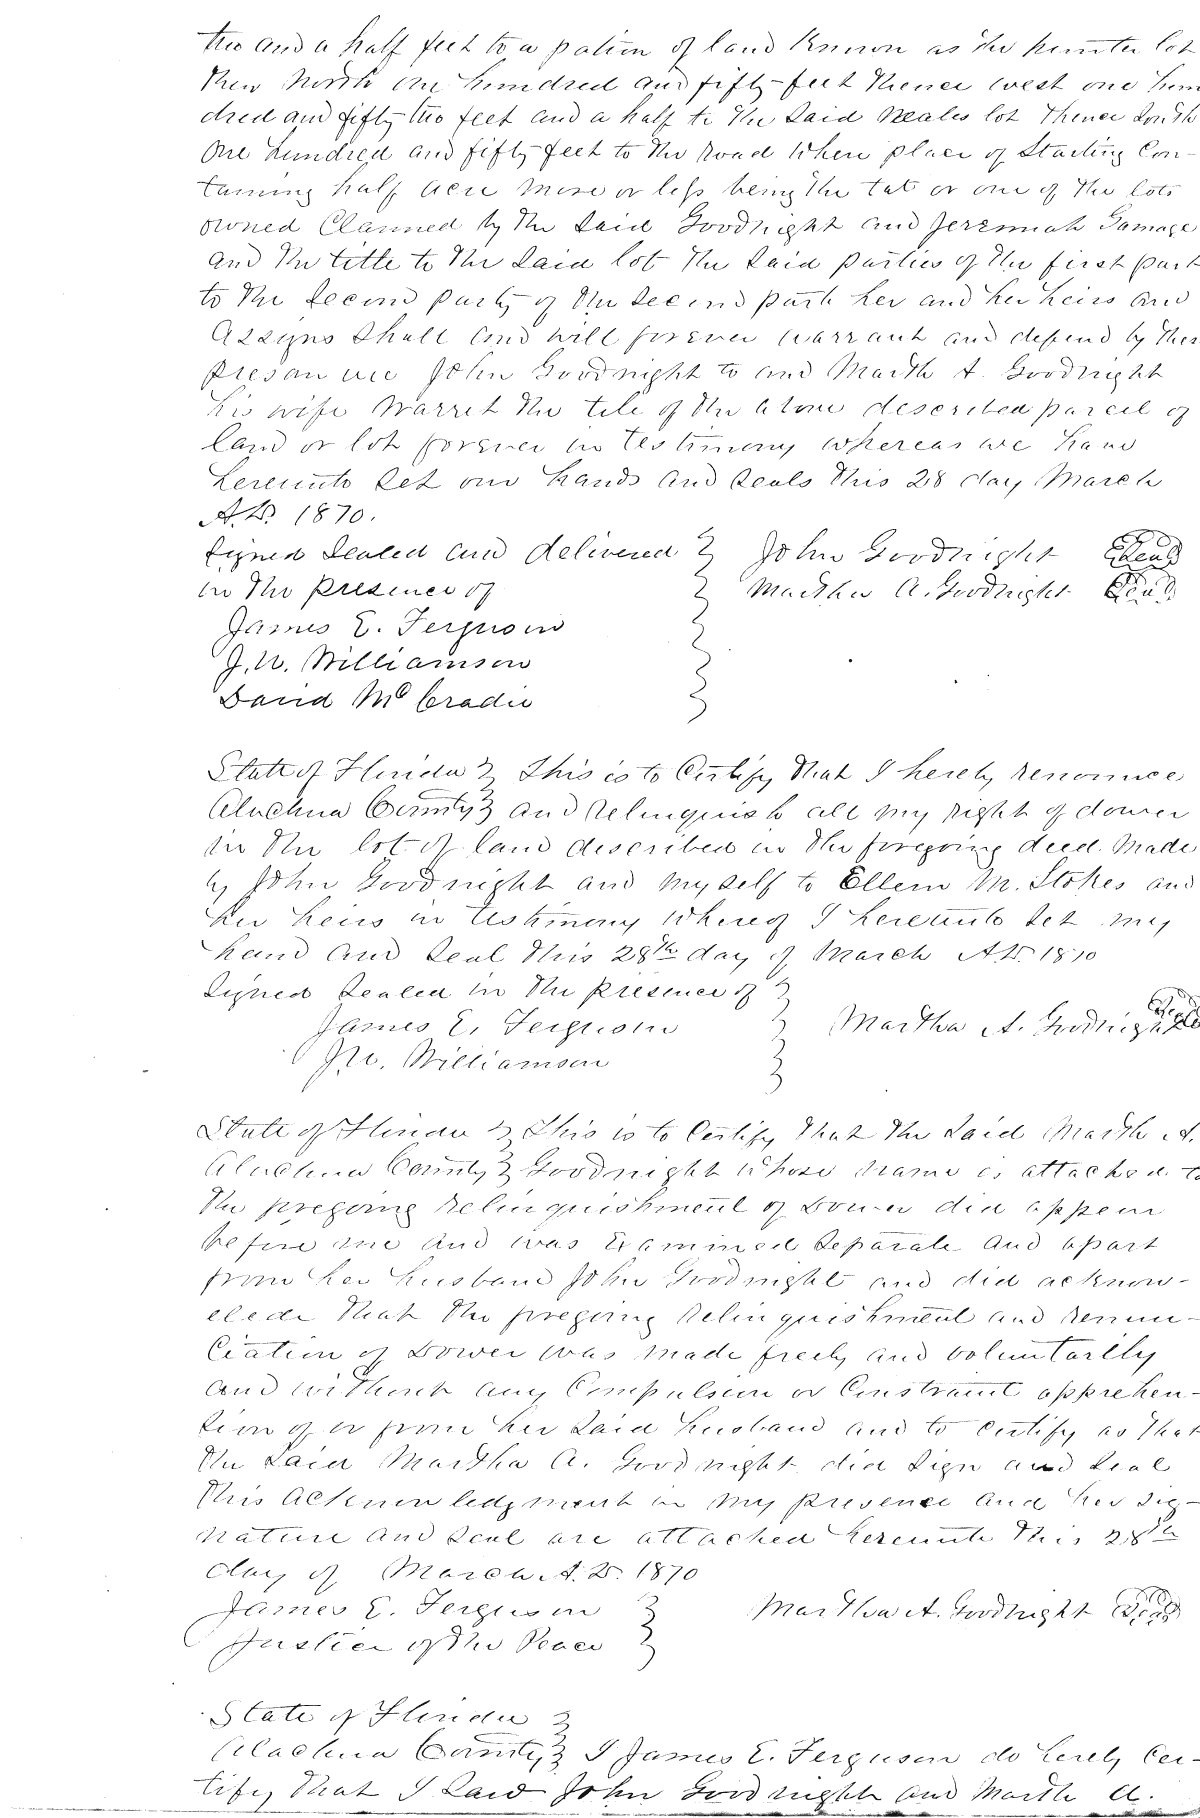 two and a half feet to a potion of land known as the hunter lot
then North one hundred and fifty feet thence west one hun
dred and fifty two feet and a half to the said Neales lot thence South
One hundred and fifty feet to the road where place of Starting Con-
taining half acre more or less being the lot or one of the lots
owned Claimed by the said Goodnight and Jeremiah Gamage
and the title to the said lot the said parties of the first part
to the second party of the second part her and her heirs and
Assigns shall and will forever warrant and defend by thes
presan we John Goodnight to and Marth A. Goodnight
his wife Warret the tile of the above described parcel of
land or lot forever in testimony whereas we have
hereunto set our hands and seals this 28 day March
A.D. 1870.
Signed Sealed and delivered } John Goodnight Seal
in the presence of } Martha A. Goodnight Seal
James E. Ferguson
J.W. Williamson
David McCradie
State of Florida } This is to Certify that I hereby renounce
Alachua County } and relinquish all my right of dower
in the lot of land described in the foregoing deed made
by John Goodnight and myself to Ellem M. Stokes and
her heirs in testimony Whereof I hereunto set my
hand and seal this 28th day of March A.D. 1870
Signed Sealed in the presence of }
James E. Ferguson } Martha A. Goodnight Seal
J.W. Williamson
State of Florida } This is to Certify that the said Marth A.
Alachua County } Goodnight whose name is attached to
the foregoing relinquishment of Dower did appear
before me and was Examined Separate and apart
from her husband John Goodnight and did acknow-
elede that the foregoing relinquishment and renun-
ciation of Dower was made freely and voluntarily
and without any Compulsion or Constraint apprehen-
sion of or from her said husband and to certify as that
the said Martha A. Goodnight did sign and seal
this acknowledgment in my presence and her sig-
nature and seal are attached hereunto this 28th
day of March A.D. 1870
James E. Ferguson } Martha A. Goodnight Seal
Justice of the Peace
State of Florida }
Alachua County } I James E. Ferguson do hereby Cer-
tify that I said John Goodnight and Marth A.